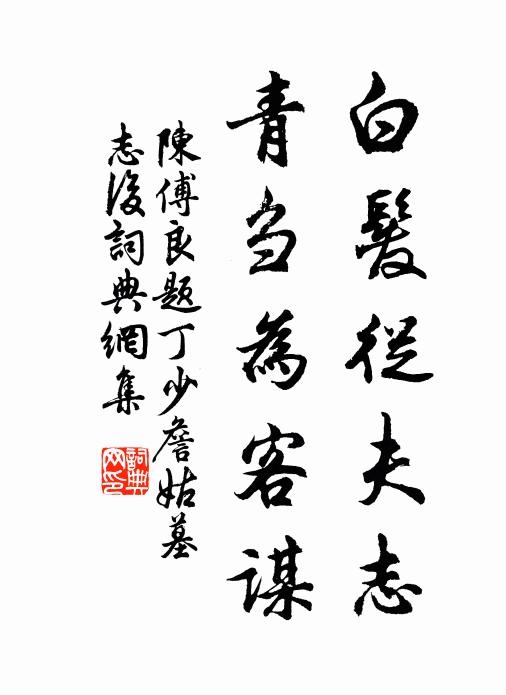 白髮從夫志
青刍為客謀
陳傅良題丁少詹姑墓
志後詞典網集
詞典网印